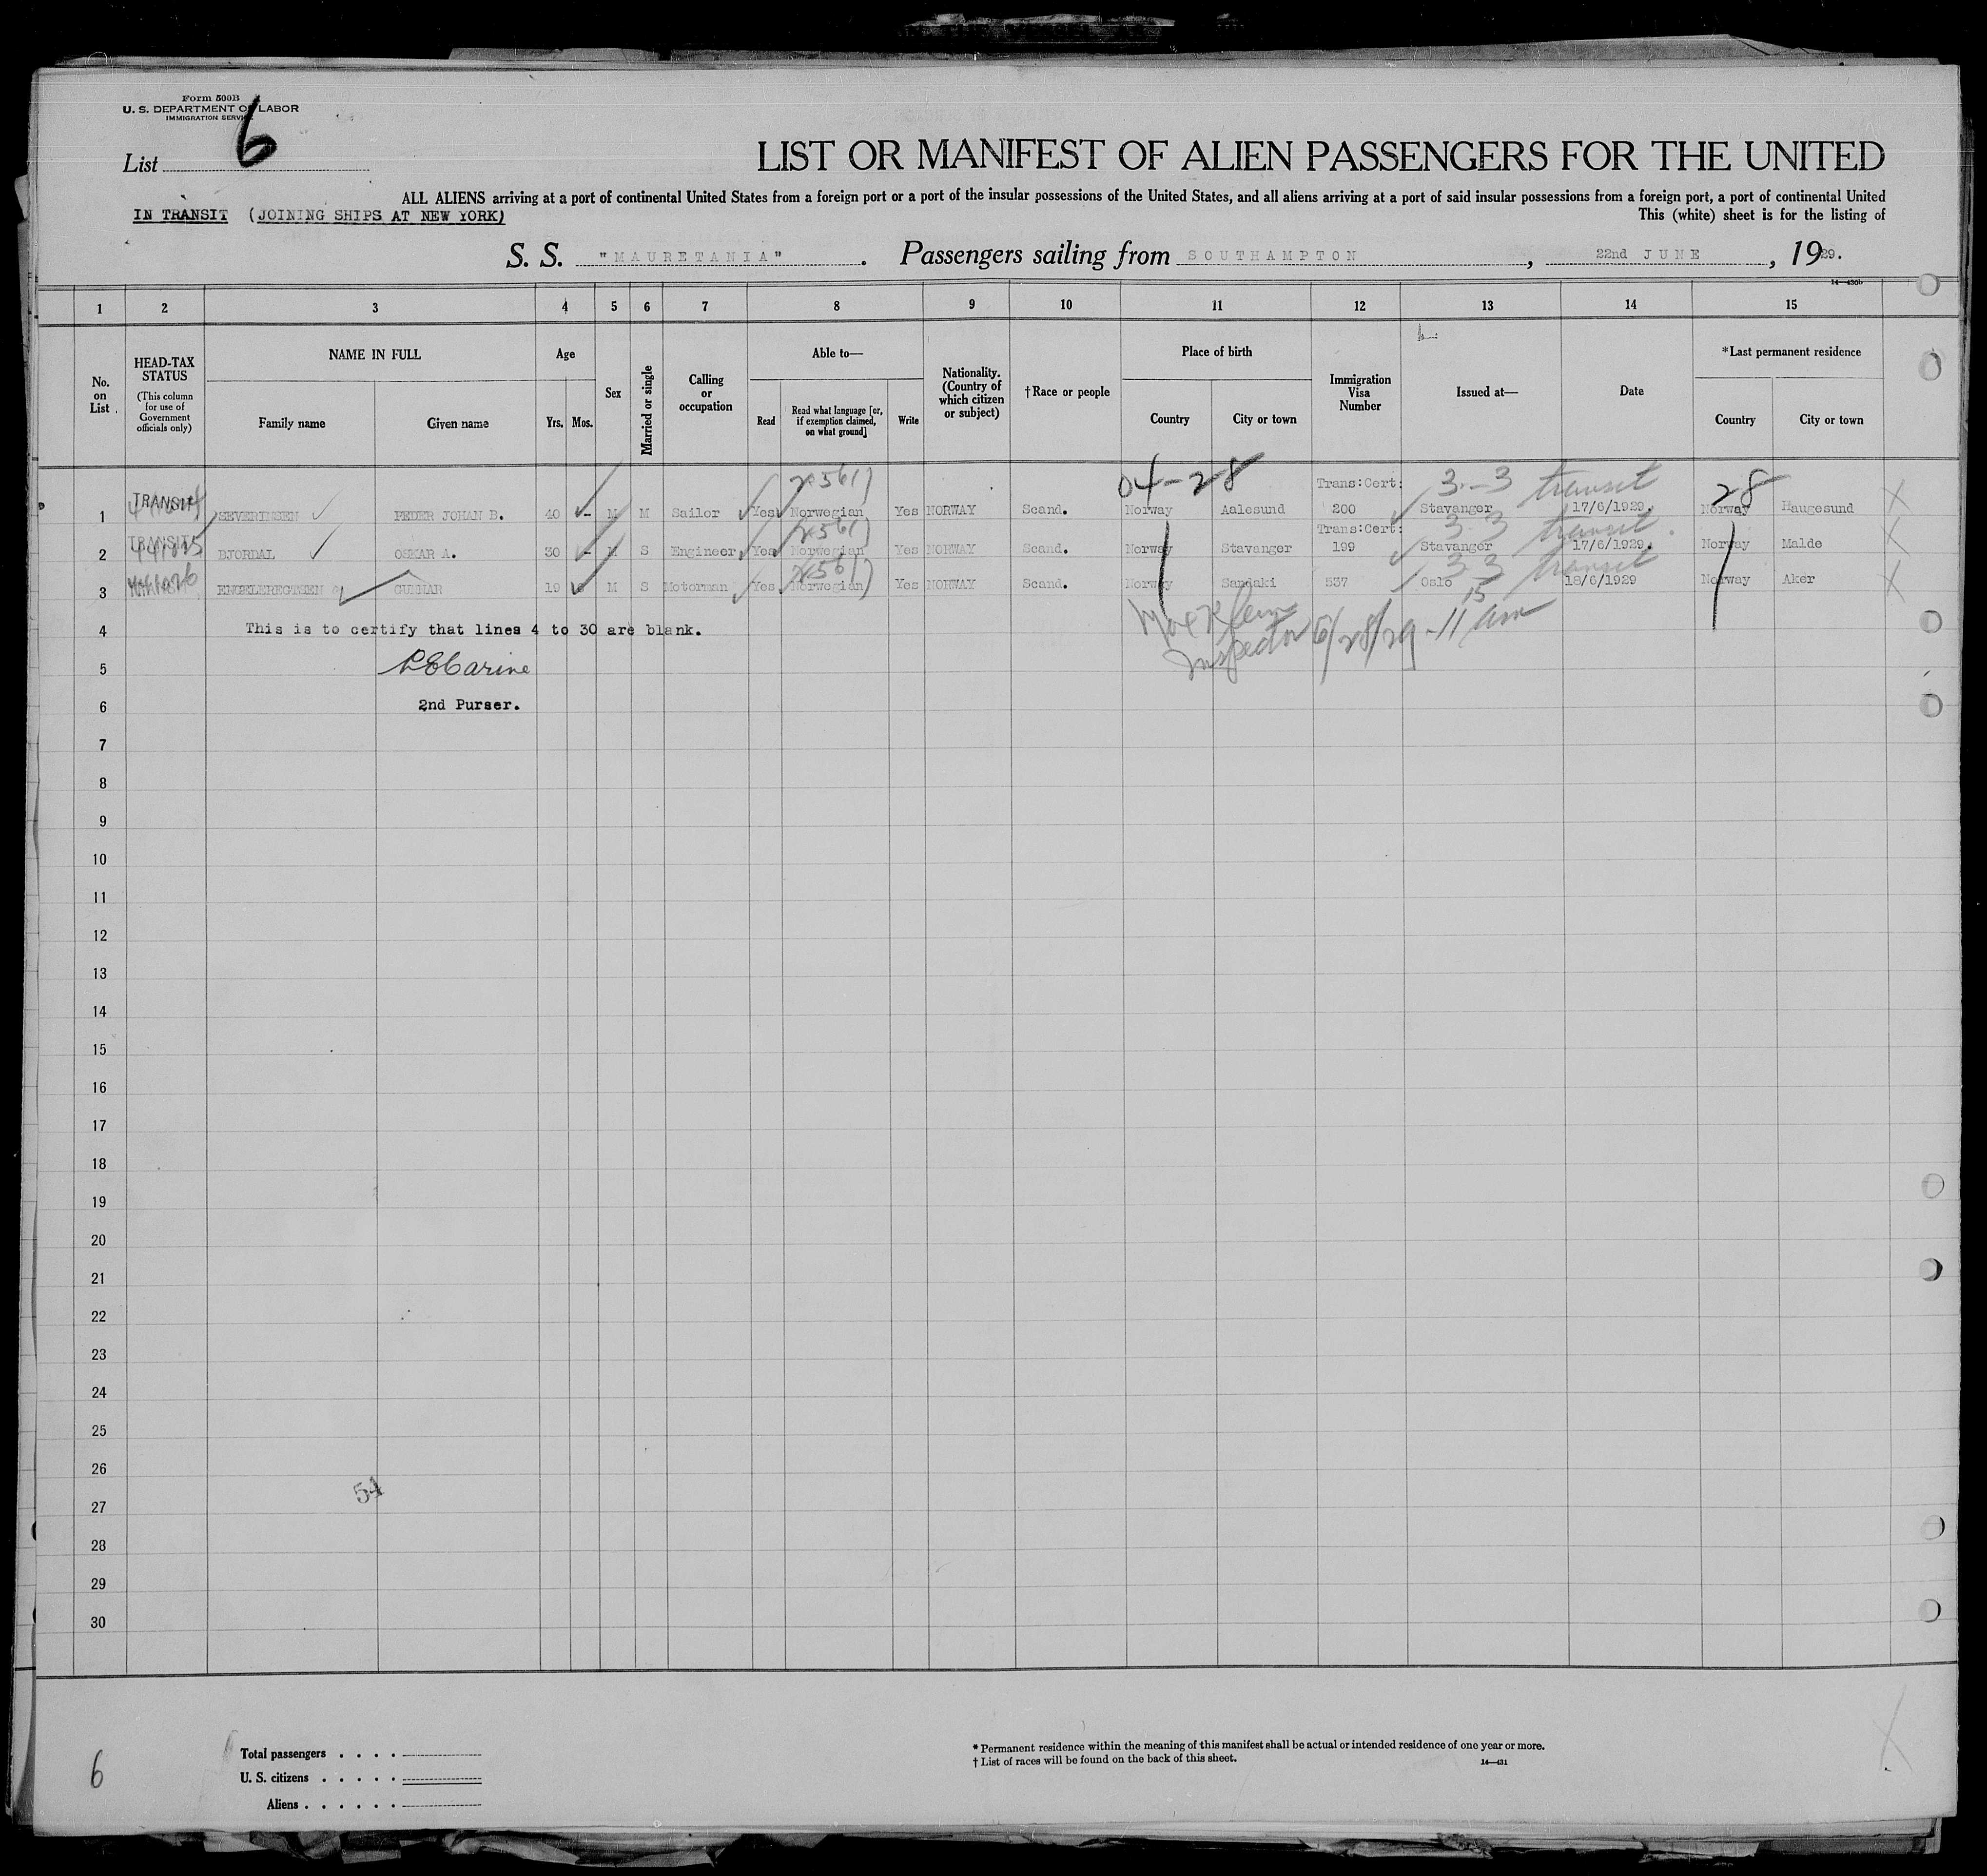 Form 500B
U. S. DEPARTMENT OF LABOR
IMMIGRATION SERVICE
List 6
LIST OR MANIFEST OF ALIEN PASSENGERS FOR THE UNITED
ALL ALIENS arriving at a port of continental United States from a foreign port or a port of the insular possessions of the United States, and all aliens arriving at a port of said insular possessions from a foreign port, a port of continental United
IN TRANSIT (JOINING SHIPS AT NEW YORK)
This (white) sheet is for the listing of
S. S. "MAURETANIA". Passengers sailing from SOUTHAMPTON, 22nd JUNE, 1929.
14—430b
1 2 3 4 5 6 7 8 9 10 11 12 13 14 15
No. on List
HEAD-TAX STATUS
(This column for use of Government officials only)
NAME IN FULL
Family name
Given name
Age
Yrs.
Mos.
Sex
Married or single
Calling or occupation
Able to—
Read
Read what language [or, if exemption claimed, on what ground]
Write
Nationality. (Country of which citizen or subject)
†Race or people
Place of birth
Country
City or town
Immigration Visa Number
Issued at—
Date
*Last permanent residence
Country
City or town
04-28
3-3 transit
28
1 TRANSIT SEVERINSEN PEDER JOHAN B. 40 - M M Sailor Yes Norwegian Yes NORWAY Scand. Norway Aalesund Trans:Cert: 200 Stavanger 17/6/1929. Norway Haugesund
3-3 transit
2 TRANSIT BJORDAL OSKAR A. 30 - M S Engineer Yes Norwegian Yes NORWAY Scand. Norway Stavanger Trans:Cert: 199 Stavanger 17/6/1929. Norway Malde
3-3 transit
3 GUNNAR 19 M S Motorman Yes Norwegian Yes NORWAY Scand. Norway Sandaki 537 Oslo 18/6/1929 Norway Aker
15
4 This is to certify that lines 4 to 30 are blank.
Inspector 6/28/29 - 11 am
5
6 2nd Purser.
7
8
9
10
11
12
13
14
15
16
17
18
19
20
21
22
23
24
25
26
54
27
28
29
30
6
Total passengers . . . .
U. S. citizens . . . . .
Aliens . . . . . .
* Permanent residence within the meaning of this manifest shall be actual or intended residence of one year or more.
† List of races will be found on the back of this sheet.
14—431